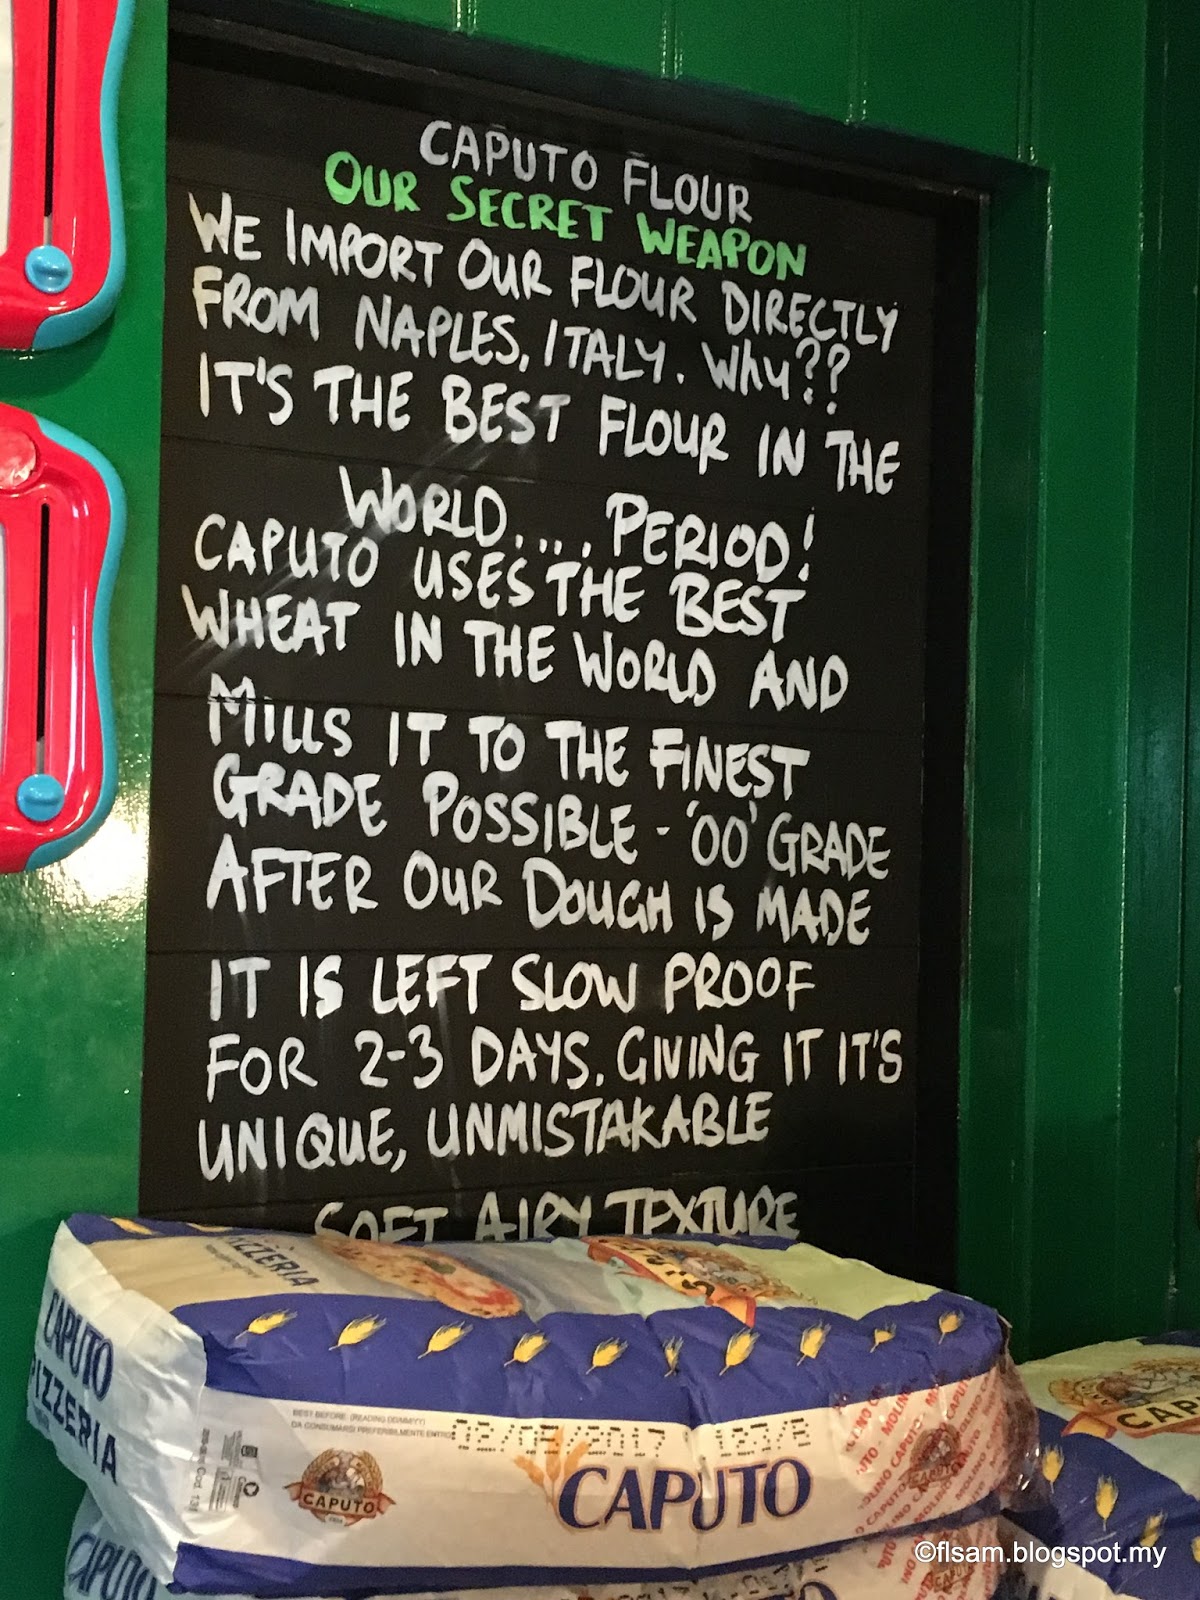 CAPUTO FLOUR
OUR SECRET WEAPON
WE IMPORT OUR FLOUR DIRECTLY
FROM NAPLES, ITALY. Why??
IT'S THE BEST FLOUR IN THE
WORLD.... PERIOD!
CAPUTO USES THE BEST
WHEAT IN THE WORLD AND
MILLS IT TO THE FINEST
GRADE POSSIBLE - '00' GRADE
AFTER OUR DOUGH IS MADE
IT IS LEFT SLOW PROOF
FOR 2-3 DAYS. GIVING IT IT'S
UNIQUE, UNMISTAKABLE
SOFT AIRY TEXTURE
PIZZERIA
CAPUTO
PIZZERIA
BEST BEFORE: (READING DD/MM/YY)
DA CONSUMARSI PREFERIBILMENTE ENTRO
CAPUTO
CAPUTO
CAPUTO
©flsam.blogspot.my